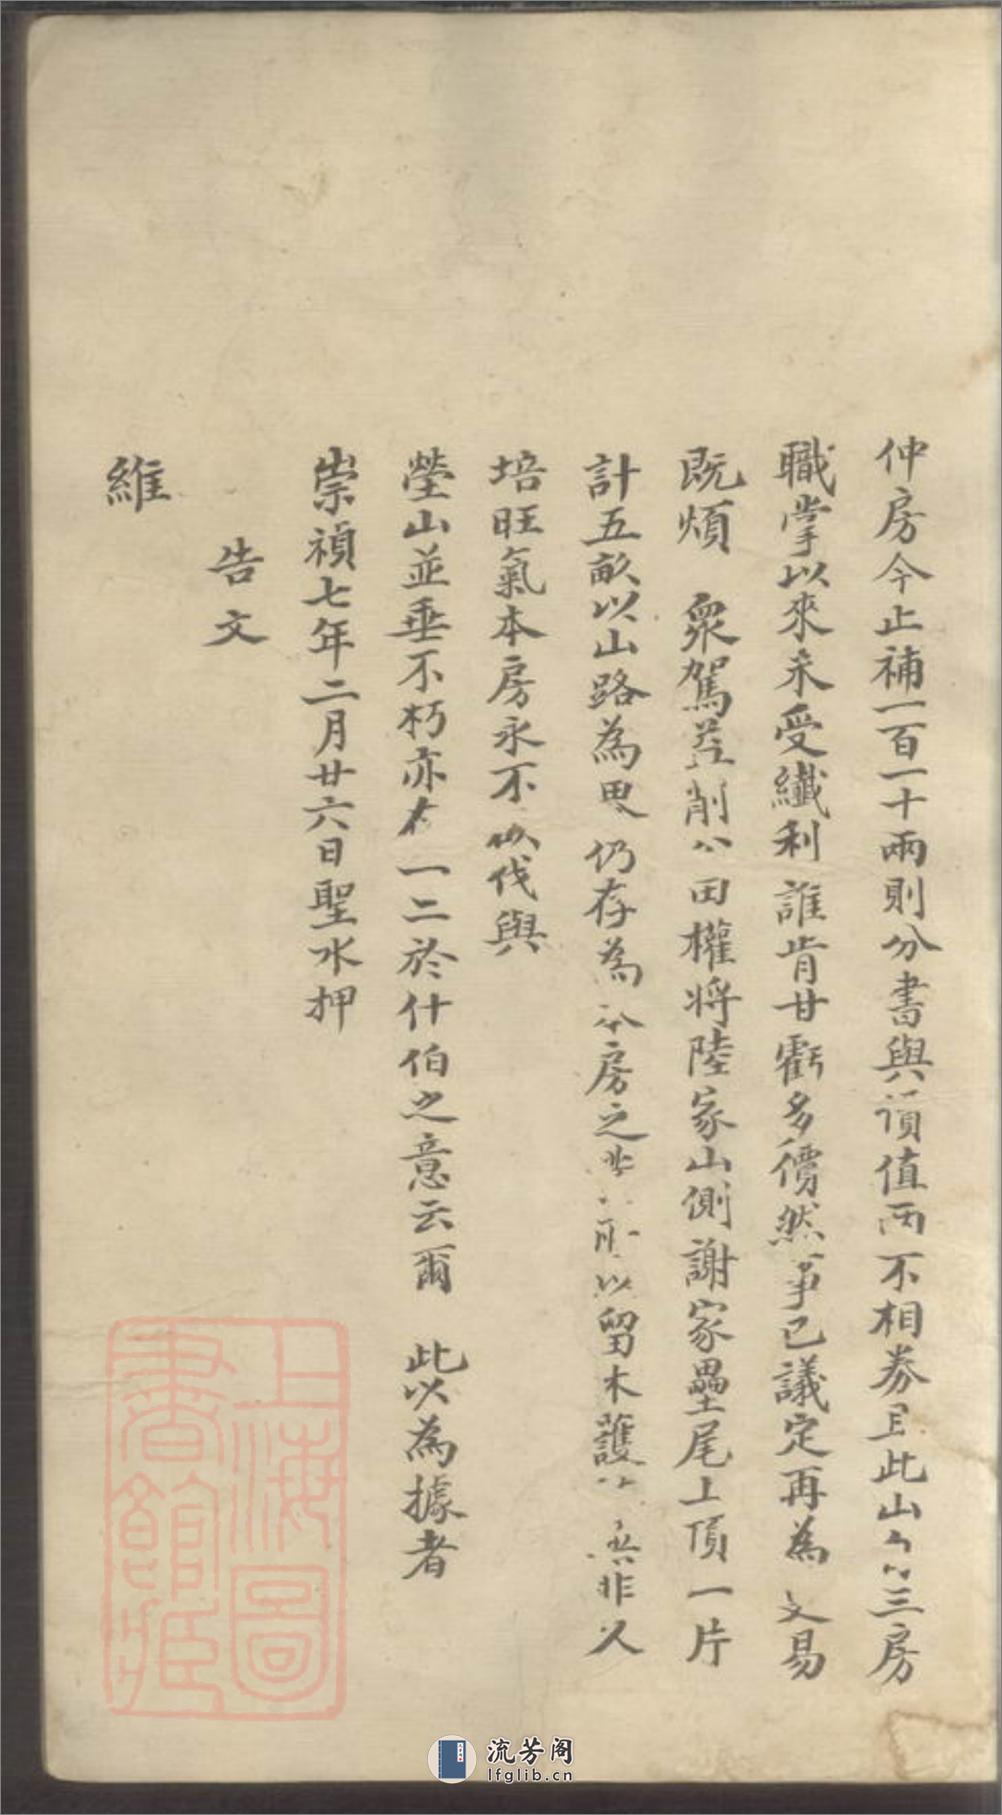 仲房今止補一百一十兩則分書與價值兩不相劵且此山 三房
職掌以來未受纖利誰肯甘虧多價然事已議定再為交易
既煩 衆駕茲削 田權將陸家山側謝家壘尾上頂一片
計五畝以山路為界仍存為本房之 以留木護 非人
培旺氣本房永不 伐與
瑩山並垂不朽亦 一二於什伯之意云爾 此以為據者
崇禎七年二月廿六日聖水押
告文
維
上海圖書館藏
流芳阁
lfglib.cn